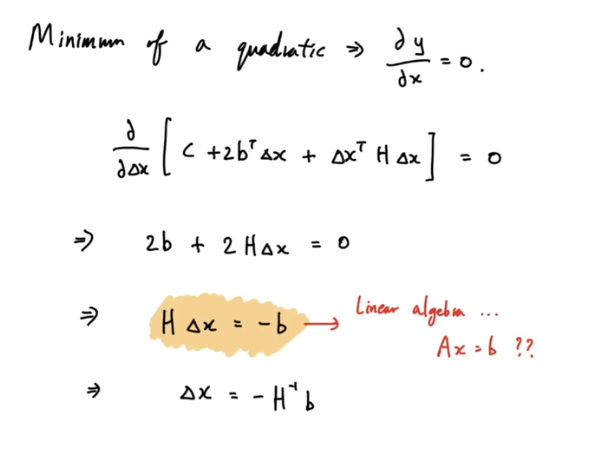 Minimum of a quadratic ⇒ ∂y/∂x = 0.
∂/∂Δx [ C + 2bᵀΔx + Δxᵀ H Δx ] = 0
⇒ 2b + 2HΔx = 0
⇒ HΔx = -b → Linear algebra ...
Ax = b ??
⇒ Δx = -H⁻¹b